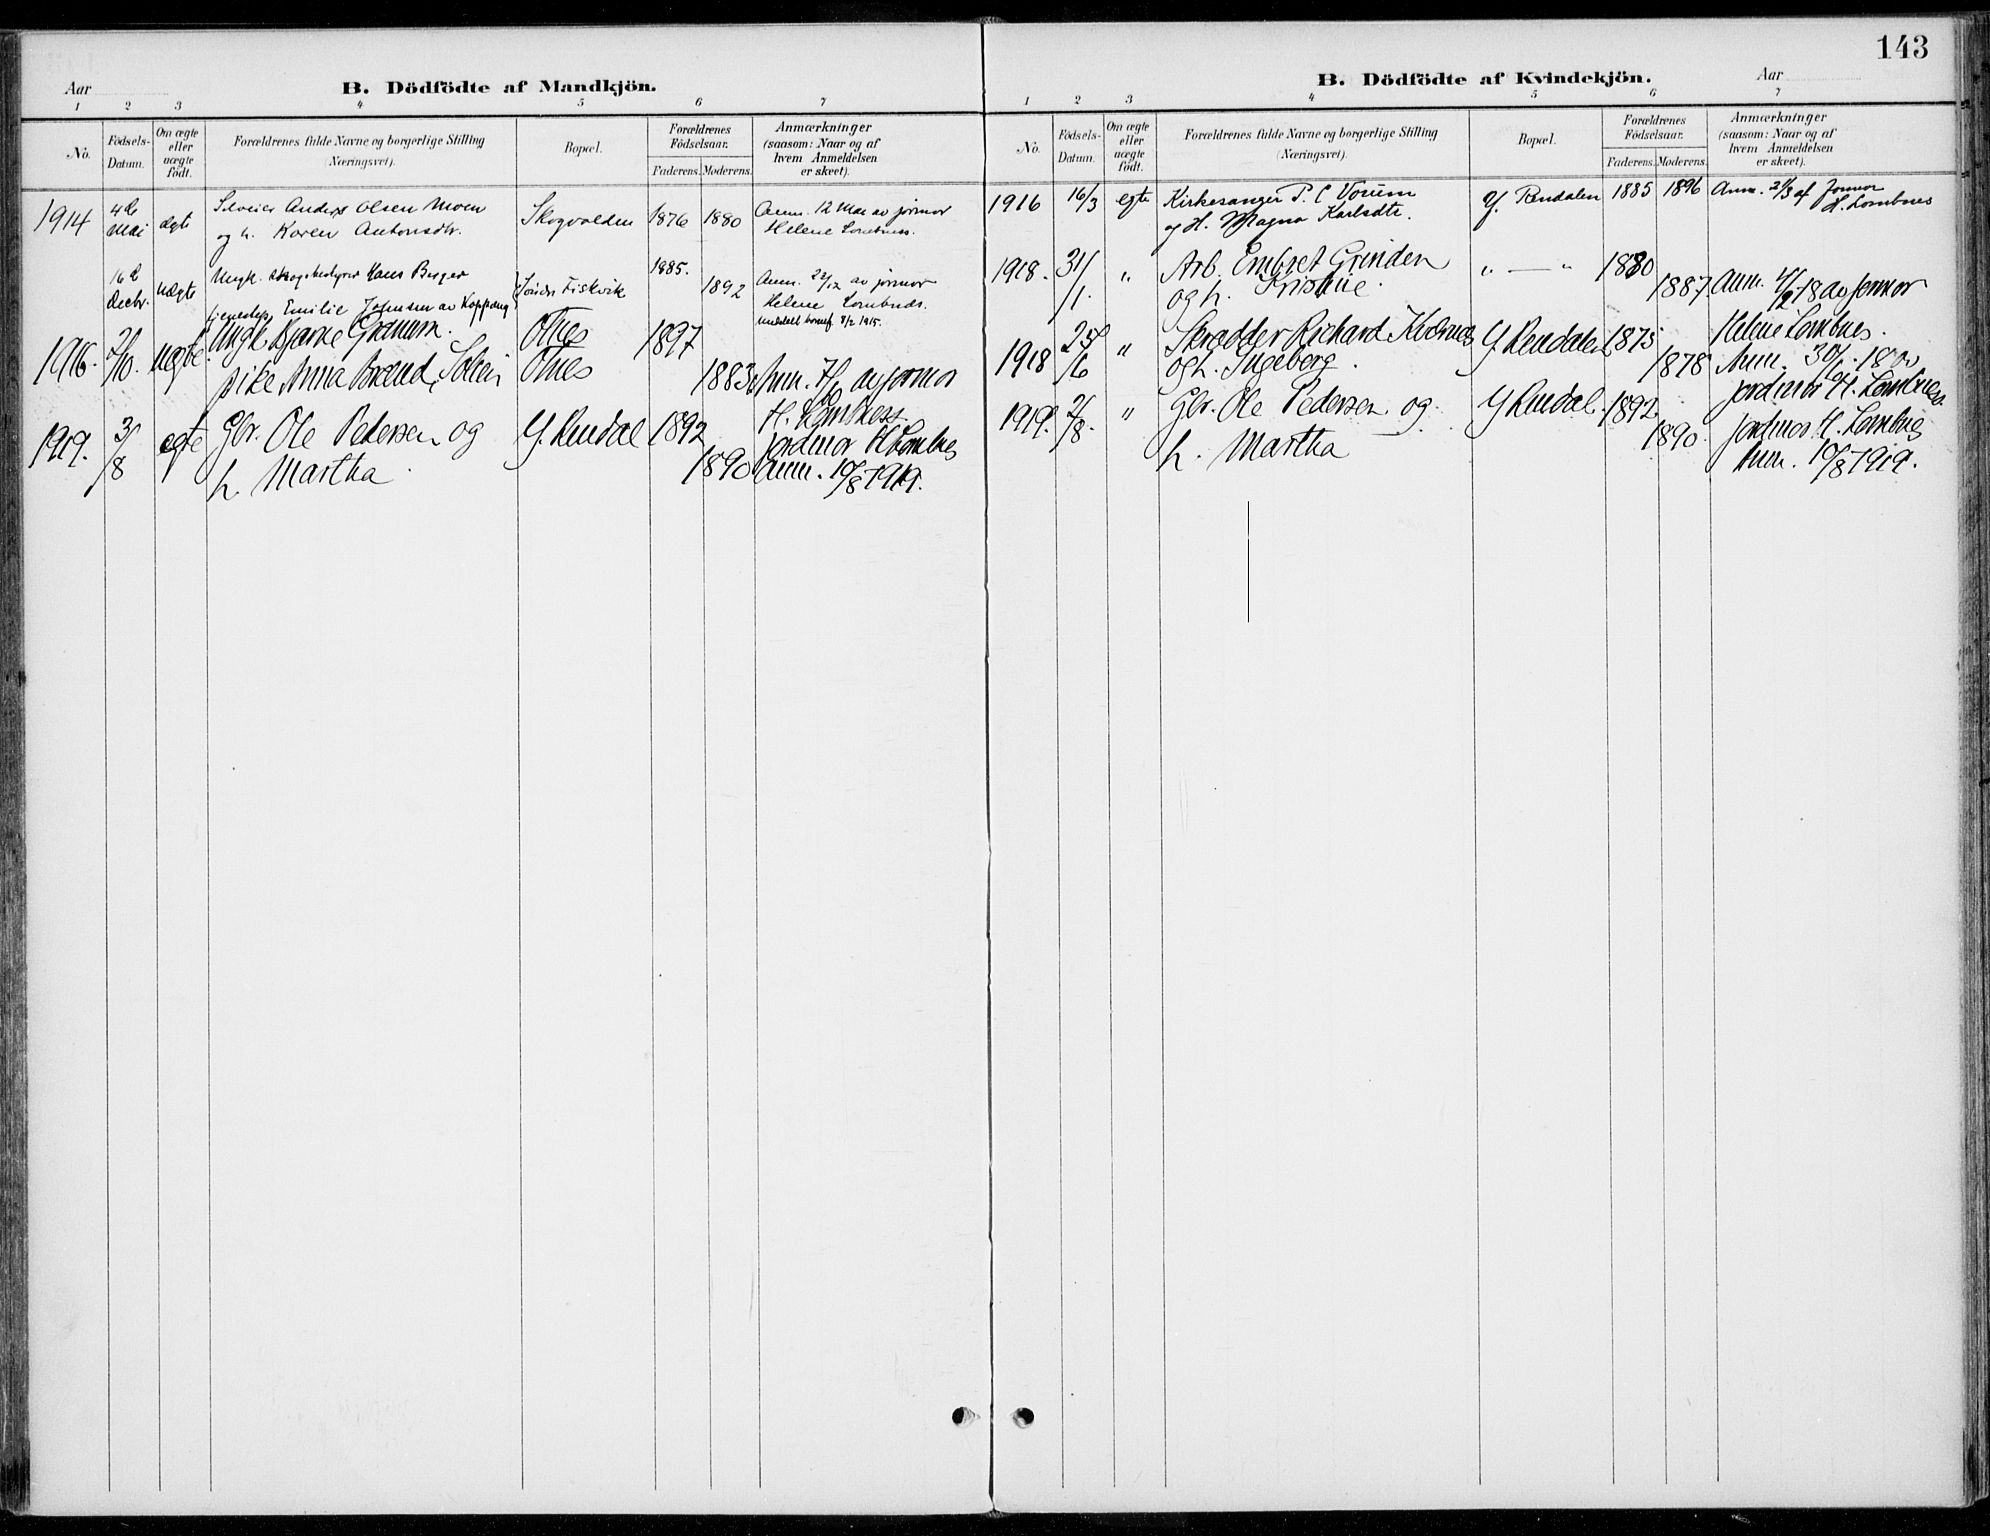 143
Aar
B. Dödfödte af Mandkjön.
1 2 3 4 5 6 7
No.
Födsels-Datum.
Om ægte eller uægte født.
Forældrenes fulde Navne og borgerlige Stilling (Næringsvei).
Bopæl.
Forældrenes Födselsaar.
Faderens. Moderens.
Anmærkninger (saasom: Naar og af hvem Anmeldelsen er skeet).
1914 4de Mai ægte Selveier Anders Olsen Moen Skogvolden 1876 1880 Anm. 12 Mai av jormor
og h. Karen Antonsdtr. Helene Lombnes.
16de Decbr. uægte Ungk. skogbestyrer Hans Berger 1885. 1892 Anm. 22/12 av jormor
Emilie Johnsen av Koppang Fiskvik Helene Lombnæs.
8/2 1915.
1916. 2/10. uægte Ungk. Bjarne Granum. Otnes 1897
pike Anna Otnes 1883 Anm. av jormor
H. Lombness
1919. 3/8 egte Gbr. Ole Pedersen og Y. Rendal 1892 jordmor H Lombnes
h. Martha 1890 Anm. 10/8 1919.
B. Dödfödte af Kvindekjön.
Aar
1 2 3 4 5 6 7
No.
Födsels-Datum.
Om ægte eller uægte födt.
Forældrenes fulde Navne og borgerlige Stilling (Næringsvei).
Bopæl.
Forældrenes Födselsaar.
Faderens. Moderens.
Anmærkninger (saasom: Naar og af hvem Anmeldelsen er skeet).
1916 16/3 egte Kirkesanger P. C Vorum Y. Rendalen 1885 1896 Anm. 21/3 af Jormor
og H. Magna Karlsdtr. H. Lombnes
1918. 31/1. " Arb. Embret Grinden " — " 1880
og h. Kristine. 1887 Anm. 4/2-18 av Jormor
Helene Lombnes.
1918 25/6 " Skrædder Richard Y Rendalen 1875
og h. Ingeborg. 1878 Anm. 30/6-18 av
jordmor H. Lombnes
1919. 2/8. " Gbr. Ole Pedersen og Y Rendal. 1892
h. Martha 1890. Jordmor H. Lombnes
Anm. 10/8 1919.